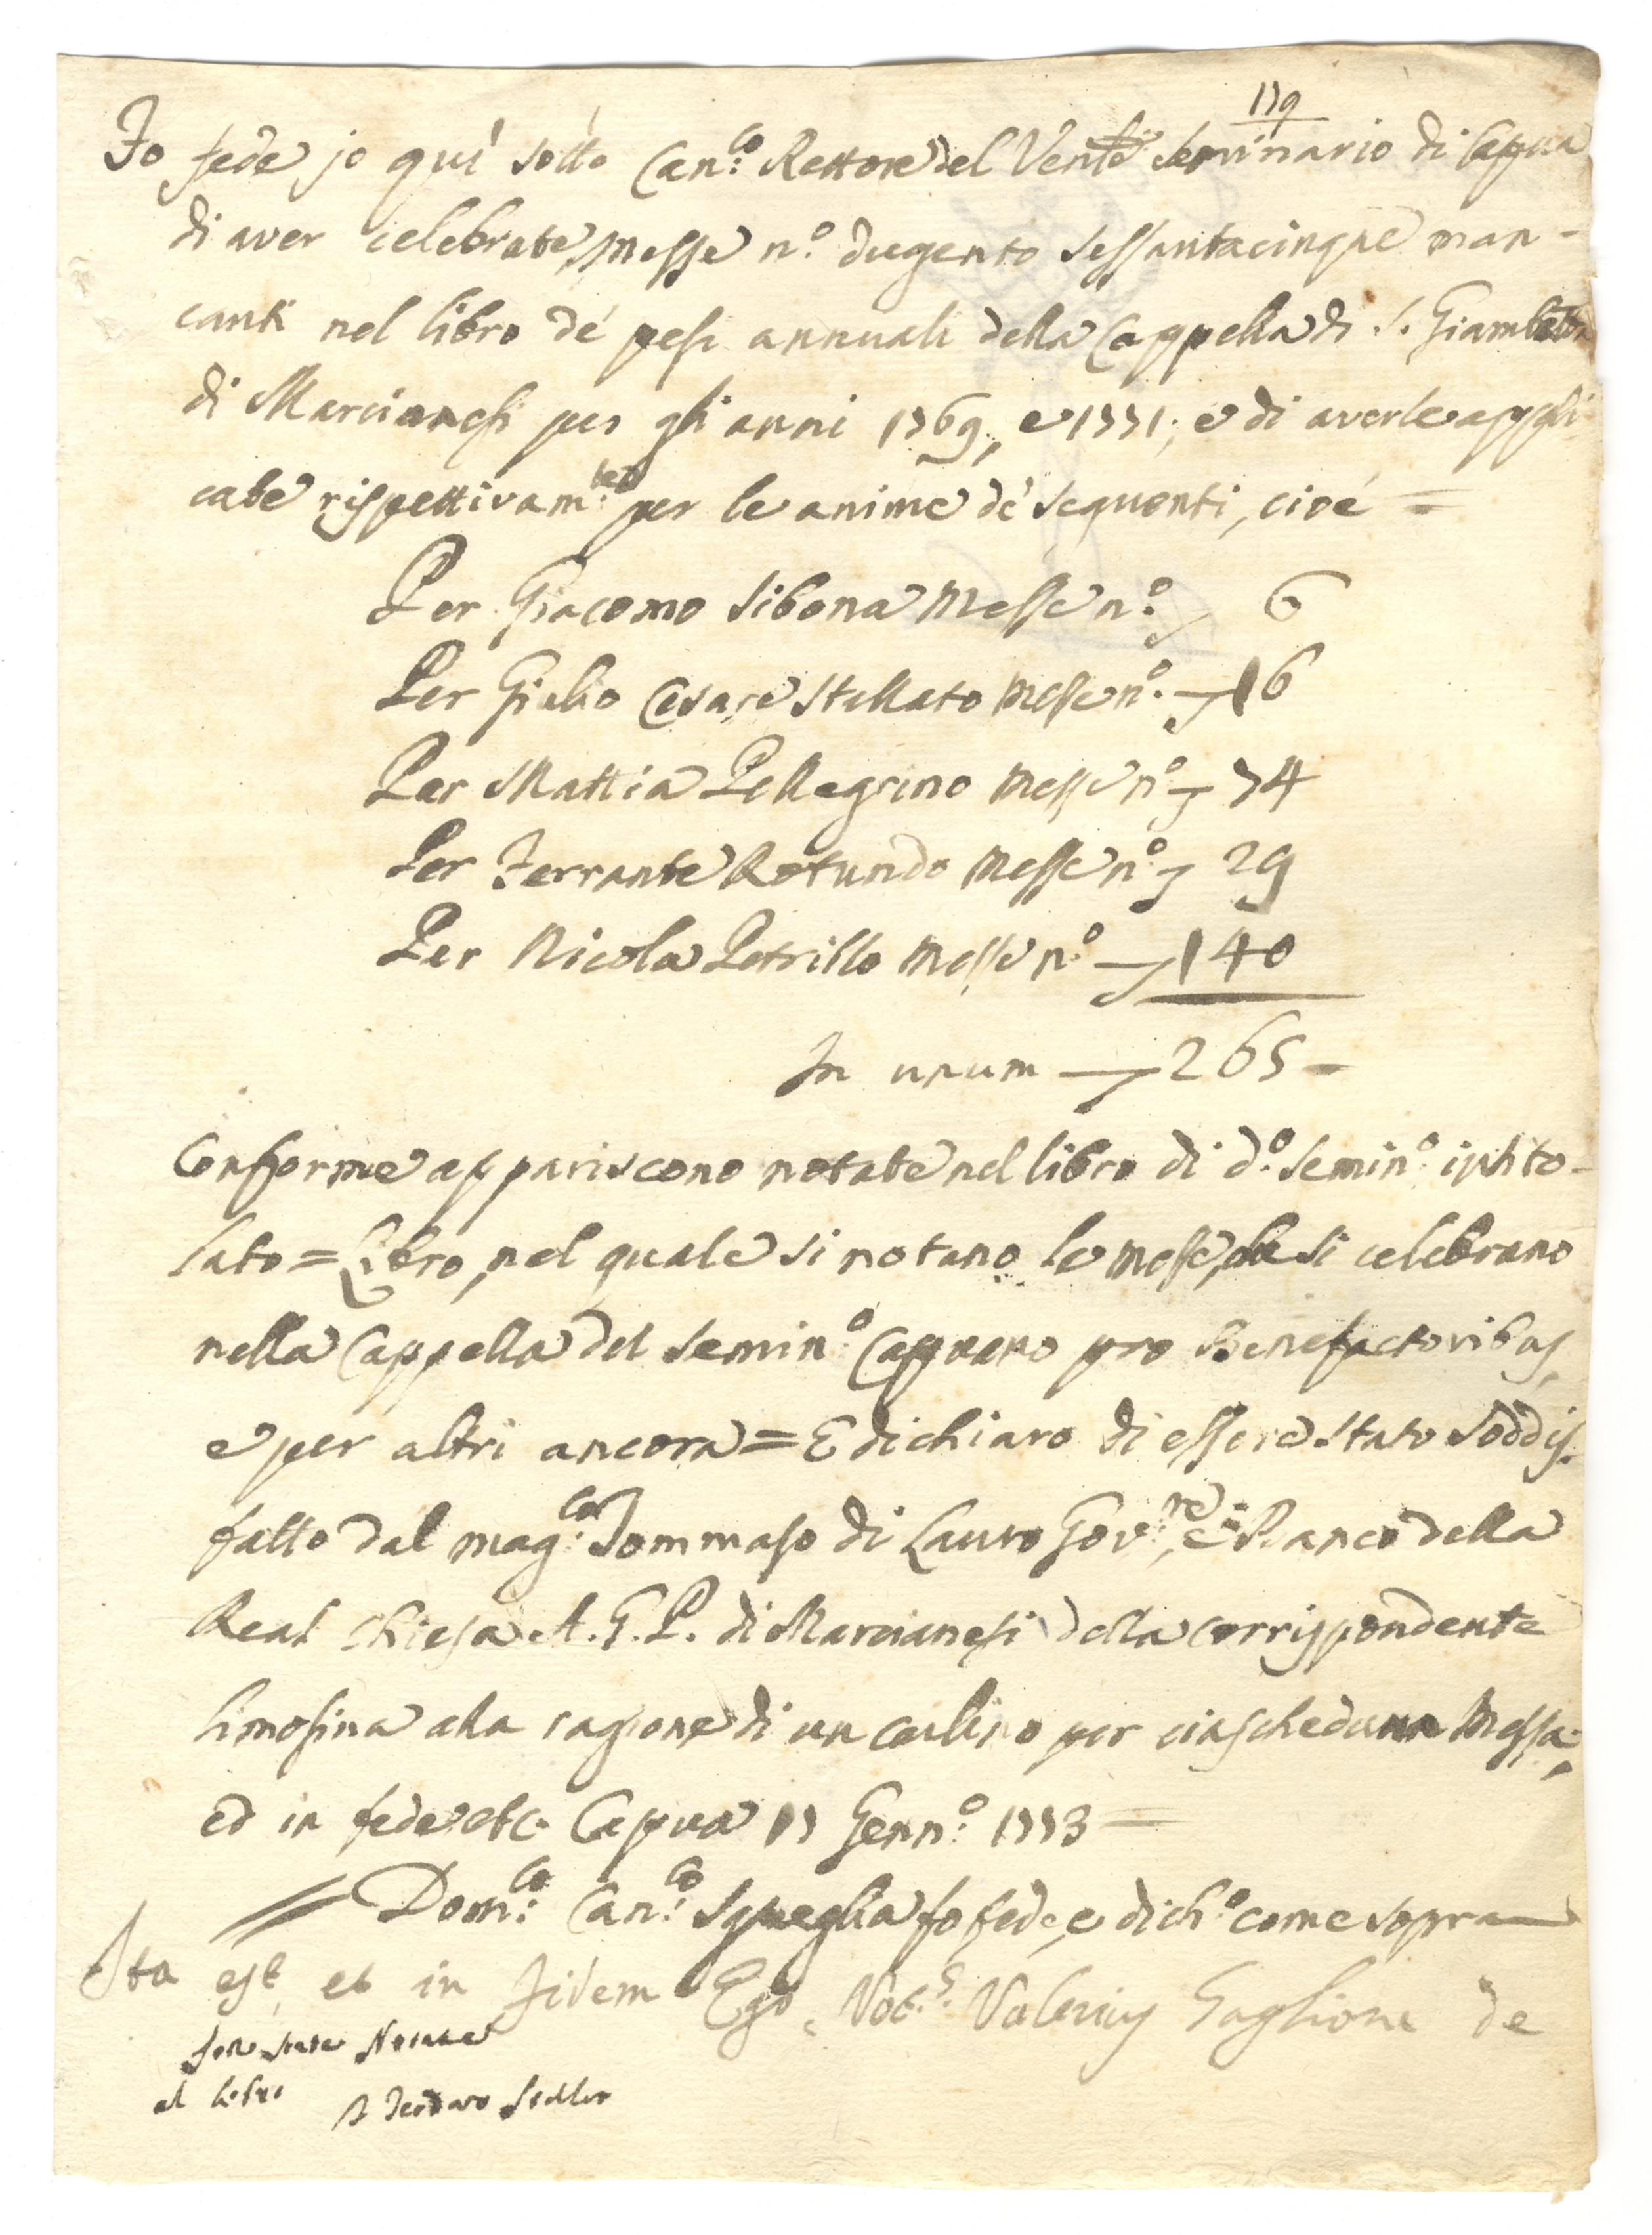 179
Fo fede io quì sotto Can.co Rettore del Ven.le Seminario di Capua
di aver celebrate Messe n.o dugento sessantacinque man-
canti nel libro de' pesi annuali della Cappella di S. Giambatta
di Marcianesi per gli anni 1769, e 1771; e di averle appli-
cate rispettivam.te per le anime de' seguenti, cioé =
Per Giacomo Sibona Messe n.o 6
Per Giulio Cesare Stellato Messe n.o 16
Per Mattia Pellegrino Messe n.o 74
Per Ferrante Rotundo Messe n.o 29
Per Nicola Petrillo Messe n.o 140
In unum 265 -
Conforme appariscono notate nel libro di d.o Semin.o intito-
lato = Libro, nel quale si notano le Messe, che si celebrano
nella Cappella del Semin.o Capuano pro Benefactoribus,
e per altri ancora = E dichiaro di essere stato soddis-
fatto dal mag.co Tommaso di Lauro Gov.re, e Banco della
Real Chiesa A. G. P. di Marcianesi della corrispondente
limosina alla ragione di un carlino per ciascheduna Messa;
ed in fede etc. Capua 17 Genn.o 1773 =
Dom.co Can.co Squeglia fo fede, e dich.o come sopra
Ita est, et in fidem Ego Not.s Valerius Gaglione de
sono state Notate
al libro